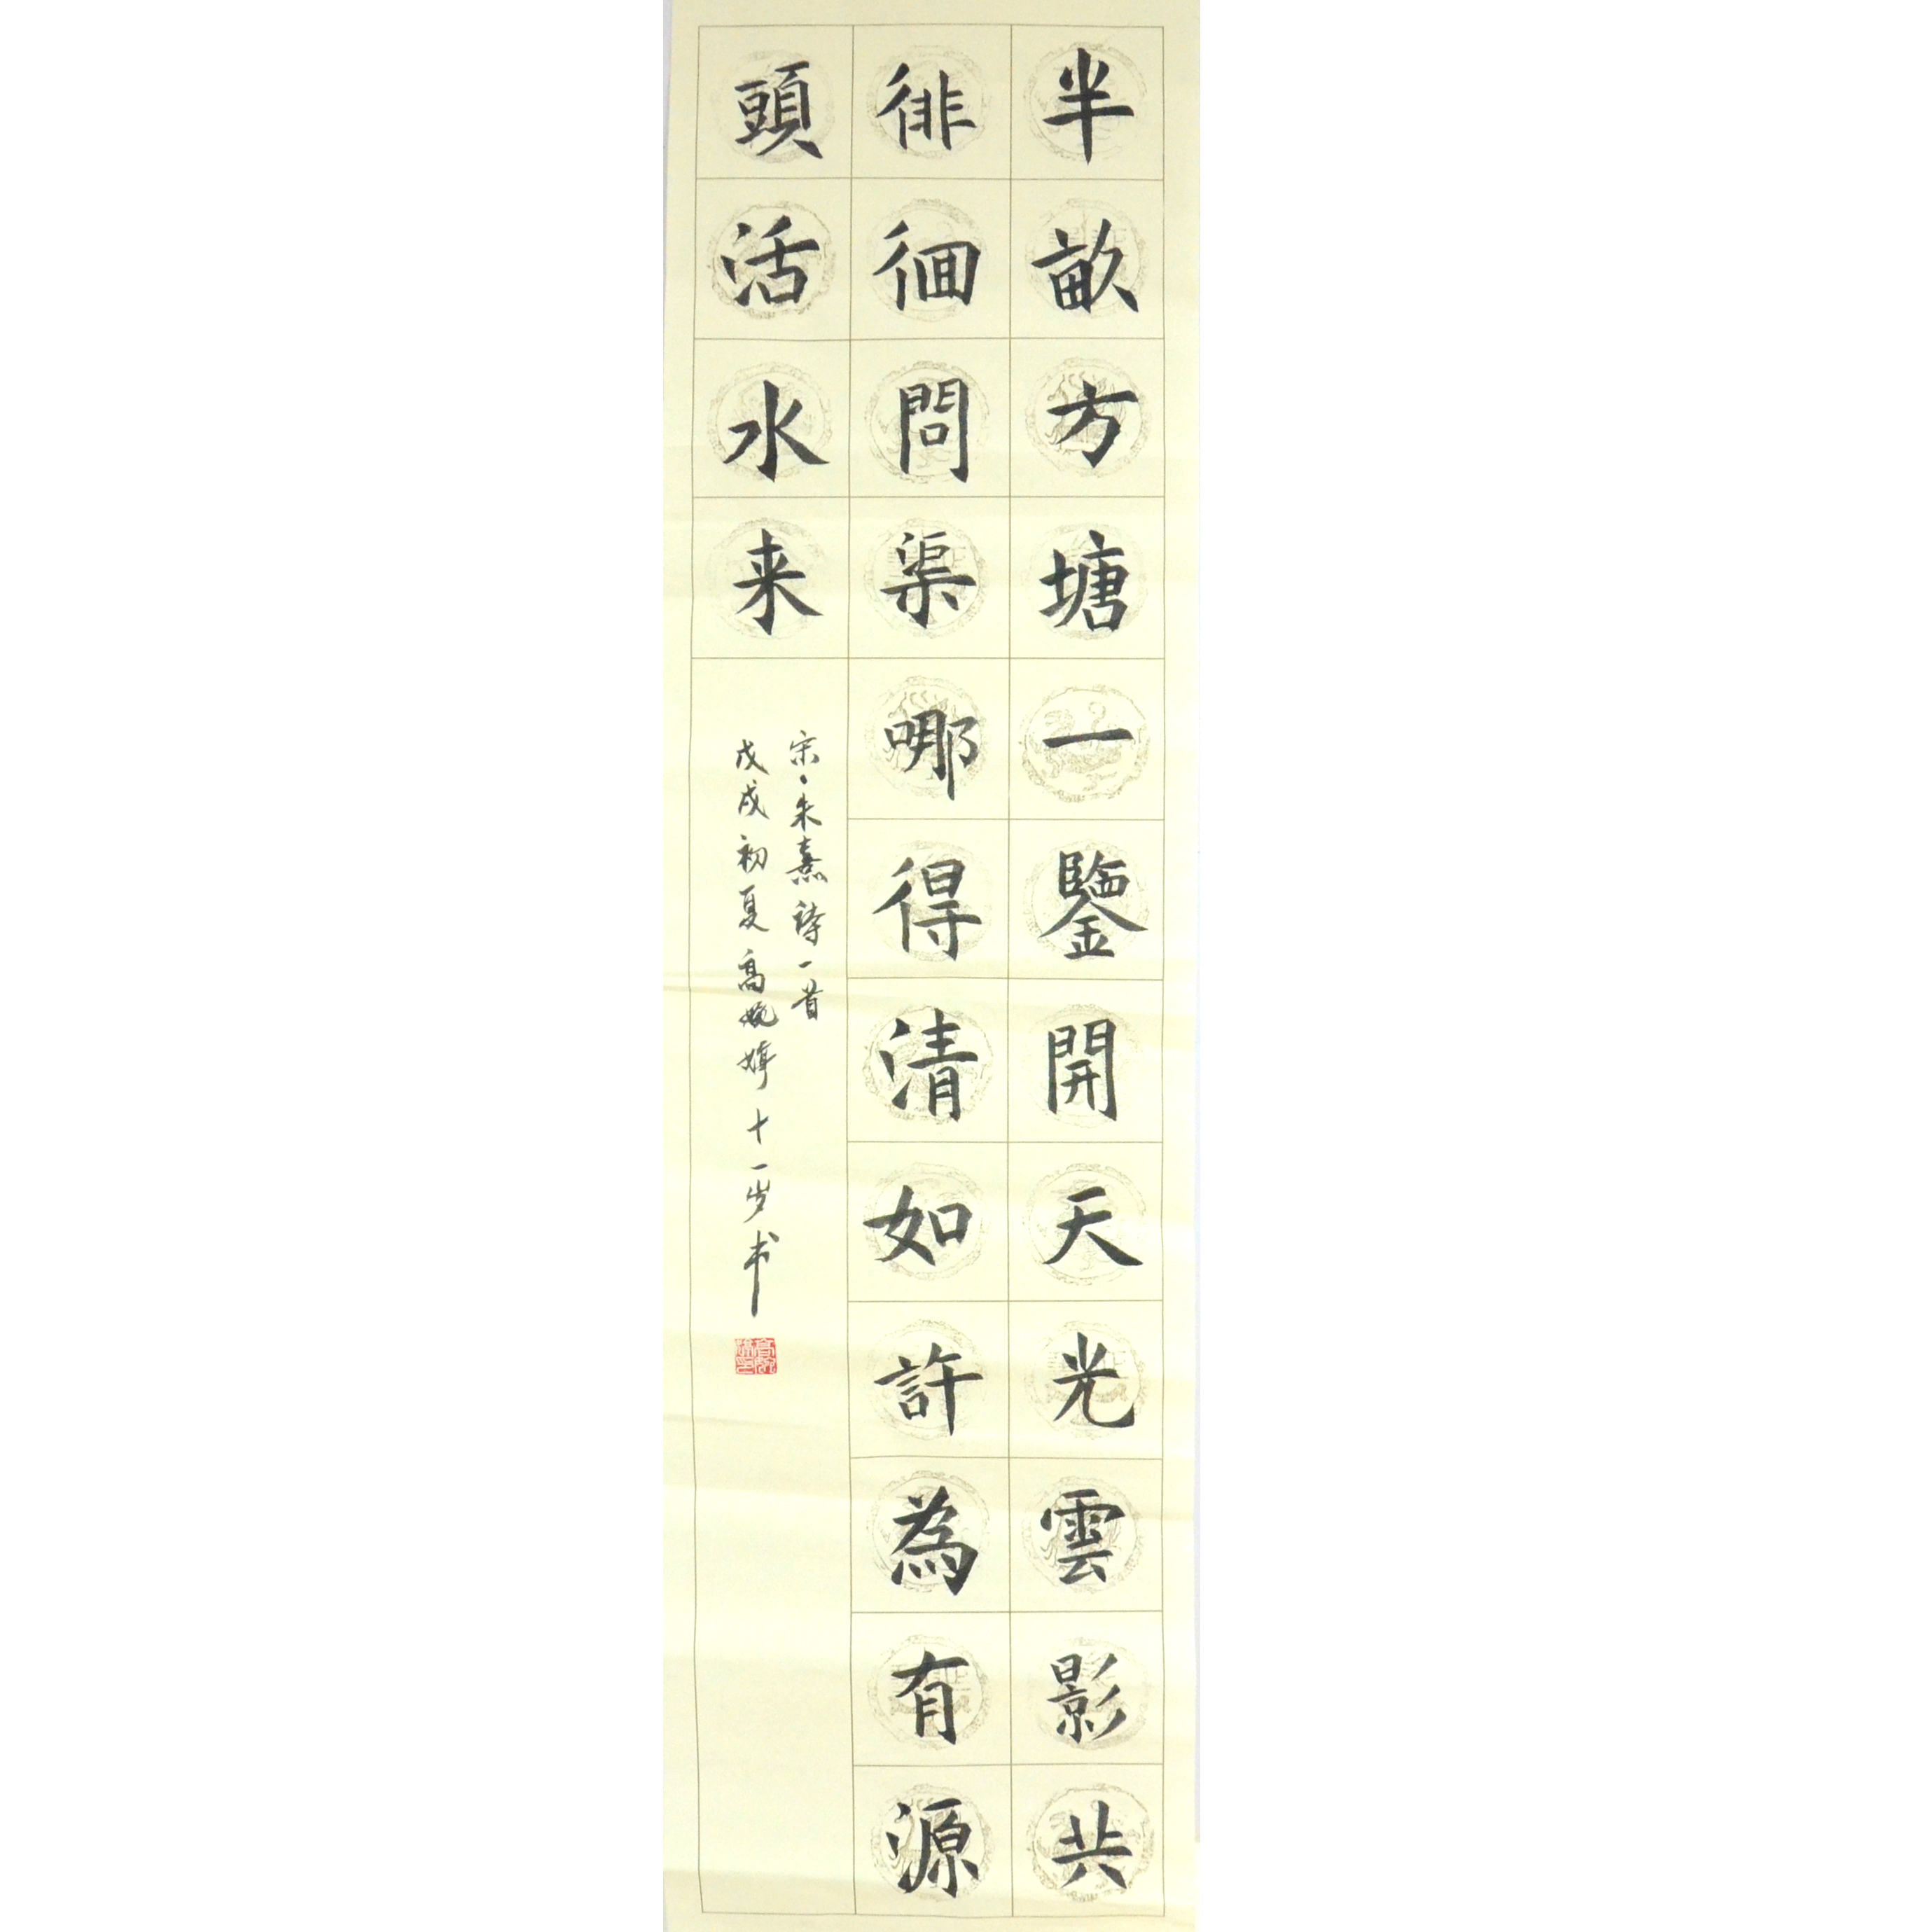 半畝方塘一鑒開天光雲影共
徘徊問渠哪得清如許為有源
頭活水来
宋、朱熹詩一首
戊戌初夏高婉婷十一岁书